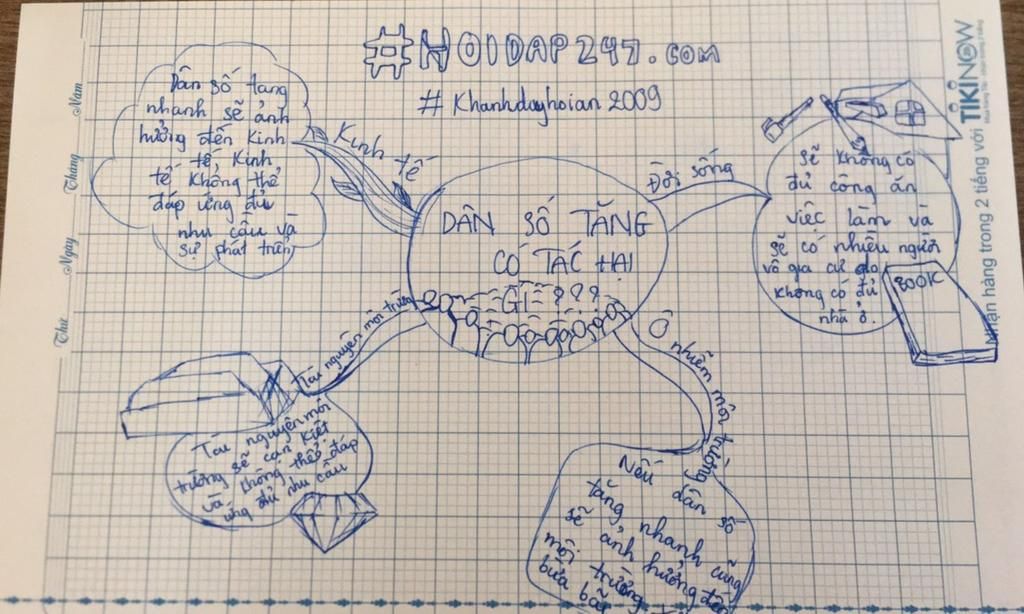 #HOIDAP247.com
# Khanhduyhoian2009
Năm
Tháng
Ngày
Thứ
TIKINOW
Nhận hàng trong 2 tiếng với
DÂN SỐ TĂNG
CÓ TÁC HẠI
GÌ ???
Kinh tế
Dân số tăng
nhanh sẽ ảnh
hưởng đến Kinh
tế, Kinh
tế không thể
đáp ứng đủ
nhu cầu và
sự phát triển
Đời sống
Sẽ không có
đủ công ăn
việc làm và
sẽ có nhiều người
vô gia cư do
không có đủ
nhà ở.
BOOK
Tài nguyên môi trường
Tài nguyên môi
trường sẽ cạn kiệt
và không thể đáp
ứng đủ nhu cầu
Ô nhiễm môi trường
Nếu dân số
tăng nhanh cũng
sẽ ảnh hưởng đến
môi trường
bừa bãi